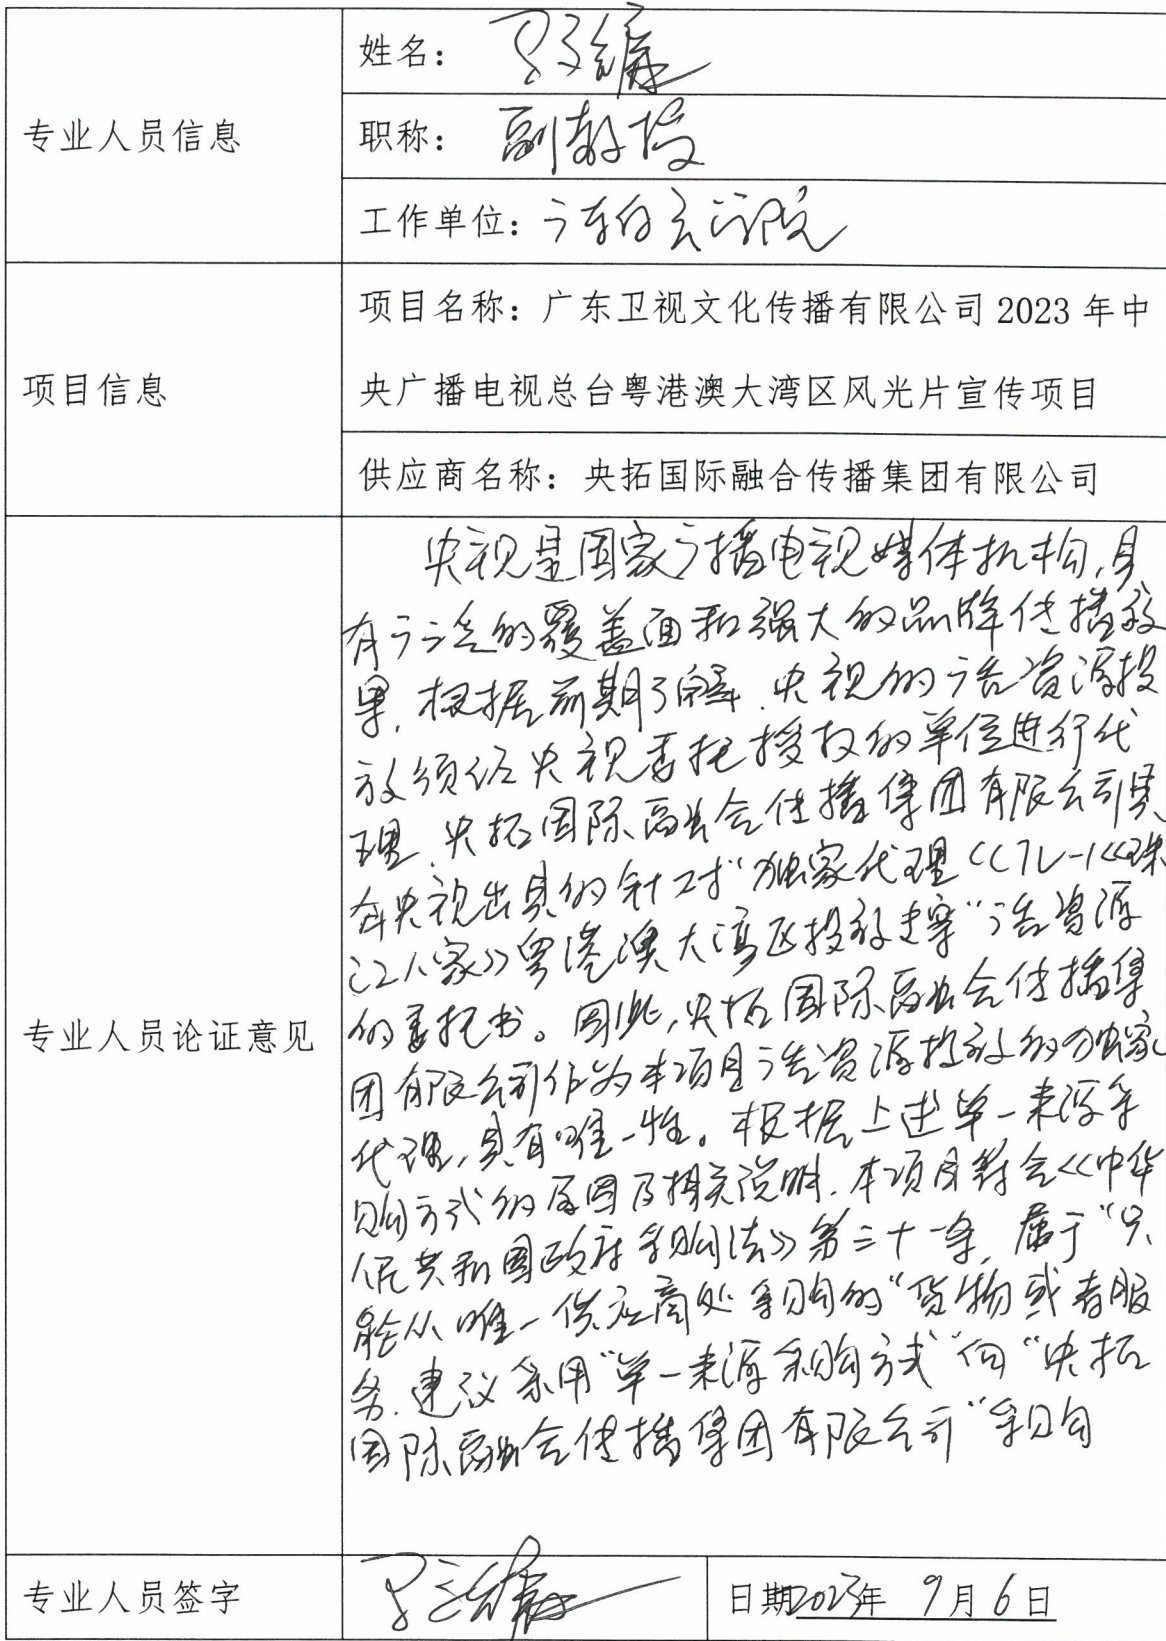 姓名：
专业人员信息
职称： 副教授
工作单位：广东白云学院
项目名称：广东卫视文化传播有限公司 2023 年中
项目信息
央广播电视总台粤港澳大湾区风光片宣传项目
供应商名称：央拓国际融合传播集团有限公司
央视是国家广播电视媒体机构,具
有广泛的覆盖面和强大的品牌传播效
果,根据前期了解,央视的广告资源投
放须经央视委托授权的单位进行代
理,央拓国际融合传播集团有限公司具
有央视出具的针对"独家代理《
江人家》粤港澳大湾区投放方案"广告资源
的委托书。因此,央拓国际融合传播集
专业人员论证意见
团有限公司作为本项目广告资源投放的独家
代理,具有唯一性。根据上述单一来源采
购方式的原因及相关说明,本项目符合《中华
人民共和国政府采购法》第三十一条,属于"只
能从唯一供应商处采购的"货物或者服
务,建议采用"单一来源采购方式"向"央拓
国际融合传播集团有限公司"采购
专业人员签字
日期2023年 9月6日